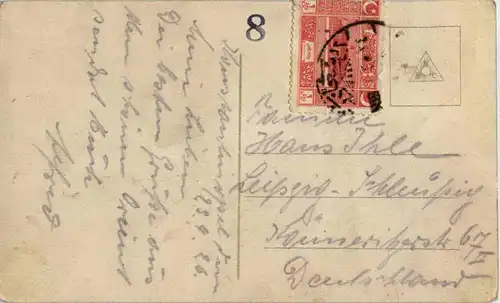 8
Konstantinopel den
23.9.26.
Meine Lieben
Die besten Grüße aus
dem schönen Orient
sendet Euch
Alfred
Familie
Hans Ihle
Leipzig-Schleußig
Könneritzstr 67
II
Deutschland